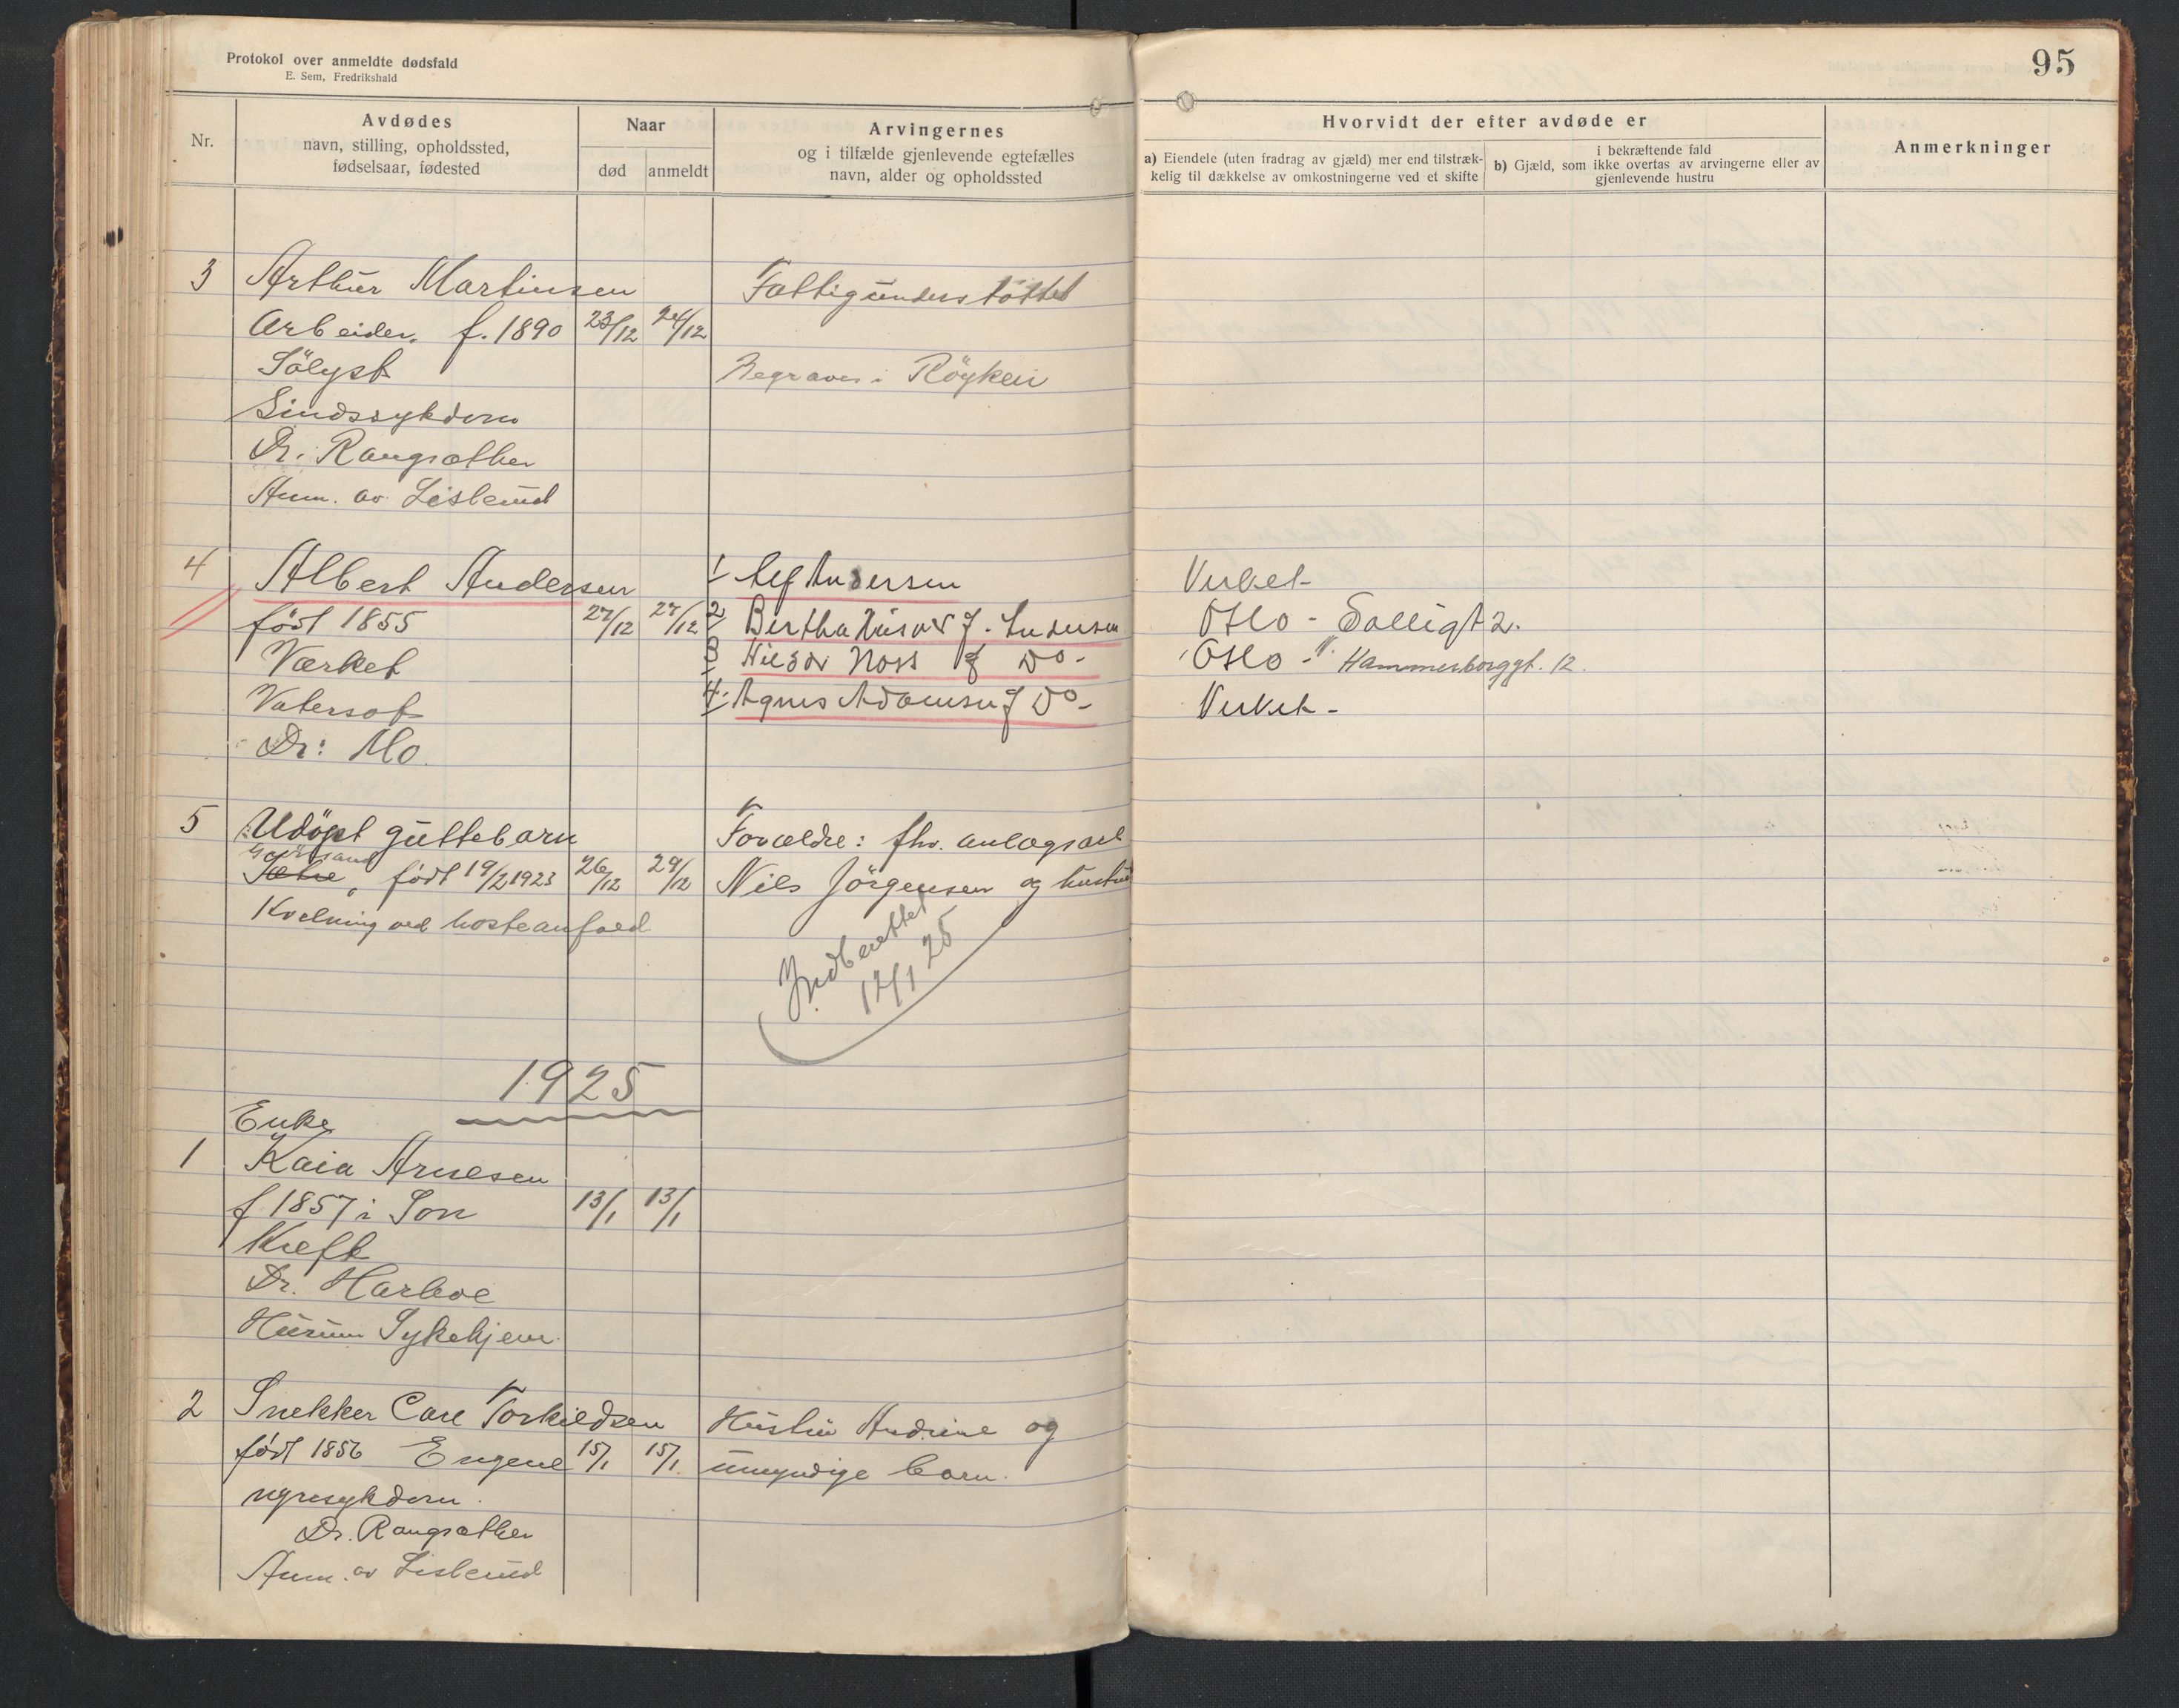 Protokol over anmeldte dødsfald
E. Sem, Fredrikshald
95
Nr.
Avdødes
navn, stilling, opholdssted,
fødselsaar, fødested
Naar
død
anmeldt
Arvingernes
og i tilfælde gjenlevende egtefælles
navn, alder og opholdssted
Hvorvidt der efter avdøde er
a) Eiendele (uten fradrag av gjæld) mer end tilstræk-
kelig til dækkelse av omkostningerne ved et skifte
i bekræftende fald
b) Gjæld, som ikke overtas av arvingerne eller av
gjenlevende hustru
Anmerkninger
3 Arthur Martinsen Fattigunderstöttet
Arbeider. f. 1890 23/12 24/12
Sölyst Begraves i Röyken
Sindssykdom
Dr. Rangsæther
Anm. av Lislerud
4 Albert Andersen 1 Leif Andersen Verket
født 1855 27/12 27/12 2 Bertha f. Andersen Oslo - Solligt 2.
Værket 3 Noss f Do - Oslo - Hammersborggt. 12.
Vatersot 4 Agnes Adamsen f Do - Verket -
Dr: Mo.
5 Udöpt guttebarn Forældre: fhv. anlægsarb
Sætre, født 19/2 1923 26/12 29/12 Nils Jörgensen og hustru
Kvelning ved hosteanfald
Indberettet
12/1 25
1925
Enke
1 Kaia Arnesen
f 1857 i Son 13/1 13/1
Kreft
Dr. Harboe
Hurum Sykehjem.
2 Snekker Carl Torkildsen Hustru Andrine og
født 1856 Engene 15/1 15/1 umyndige barn.
nyresykdom.
Dr. Rangsæther
Anm. av Lislerud